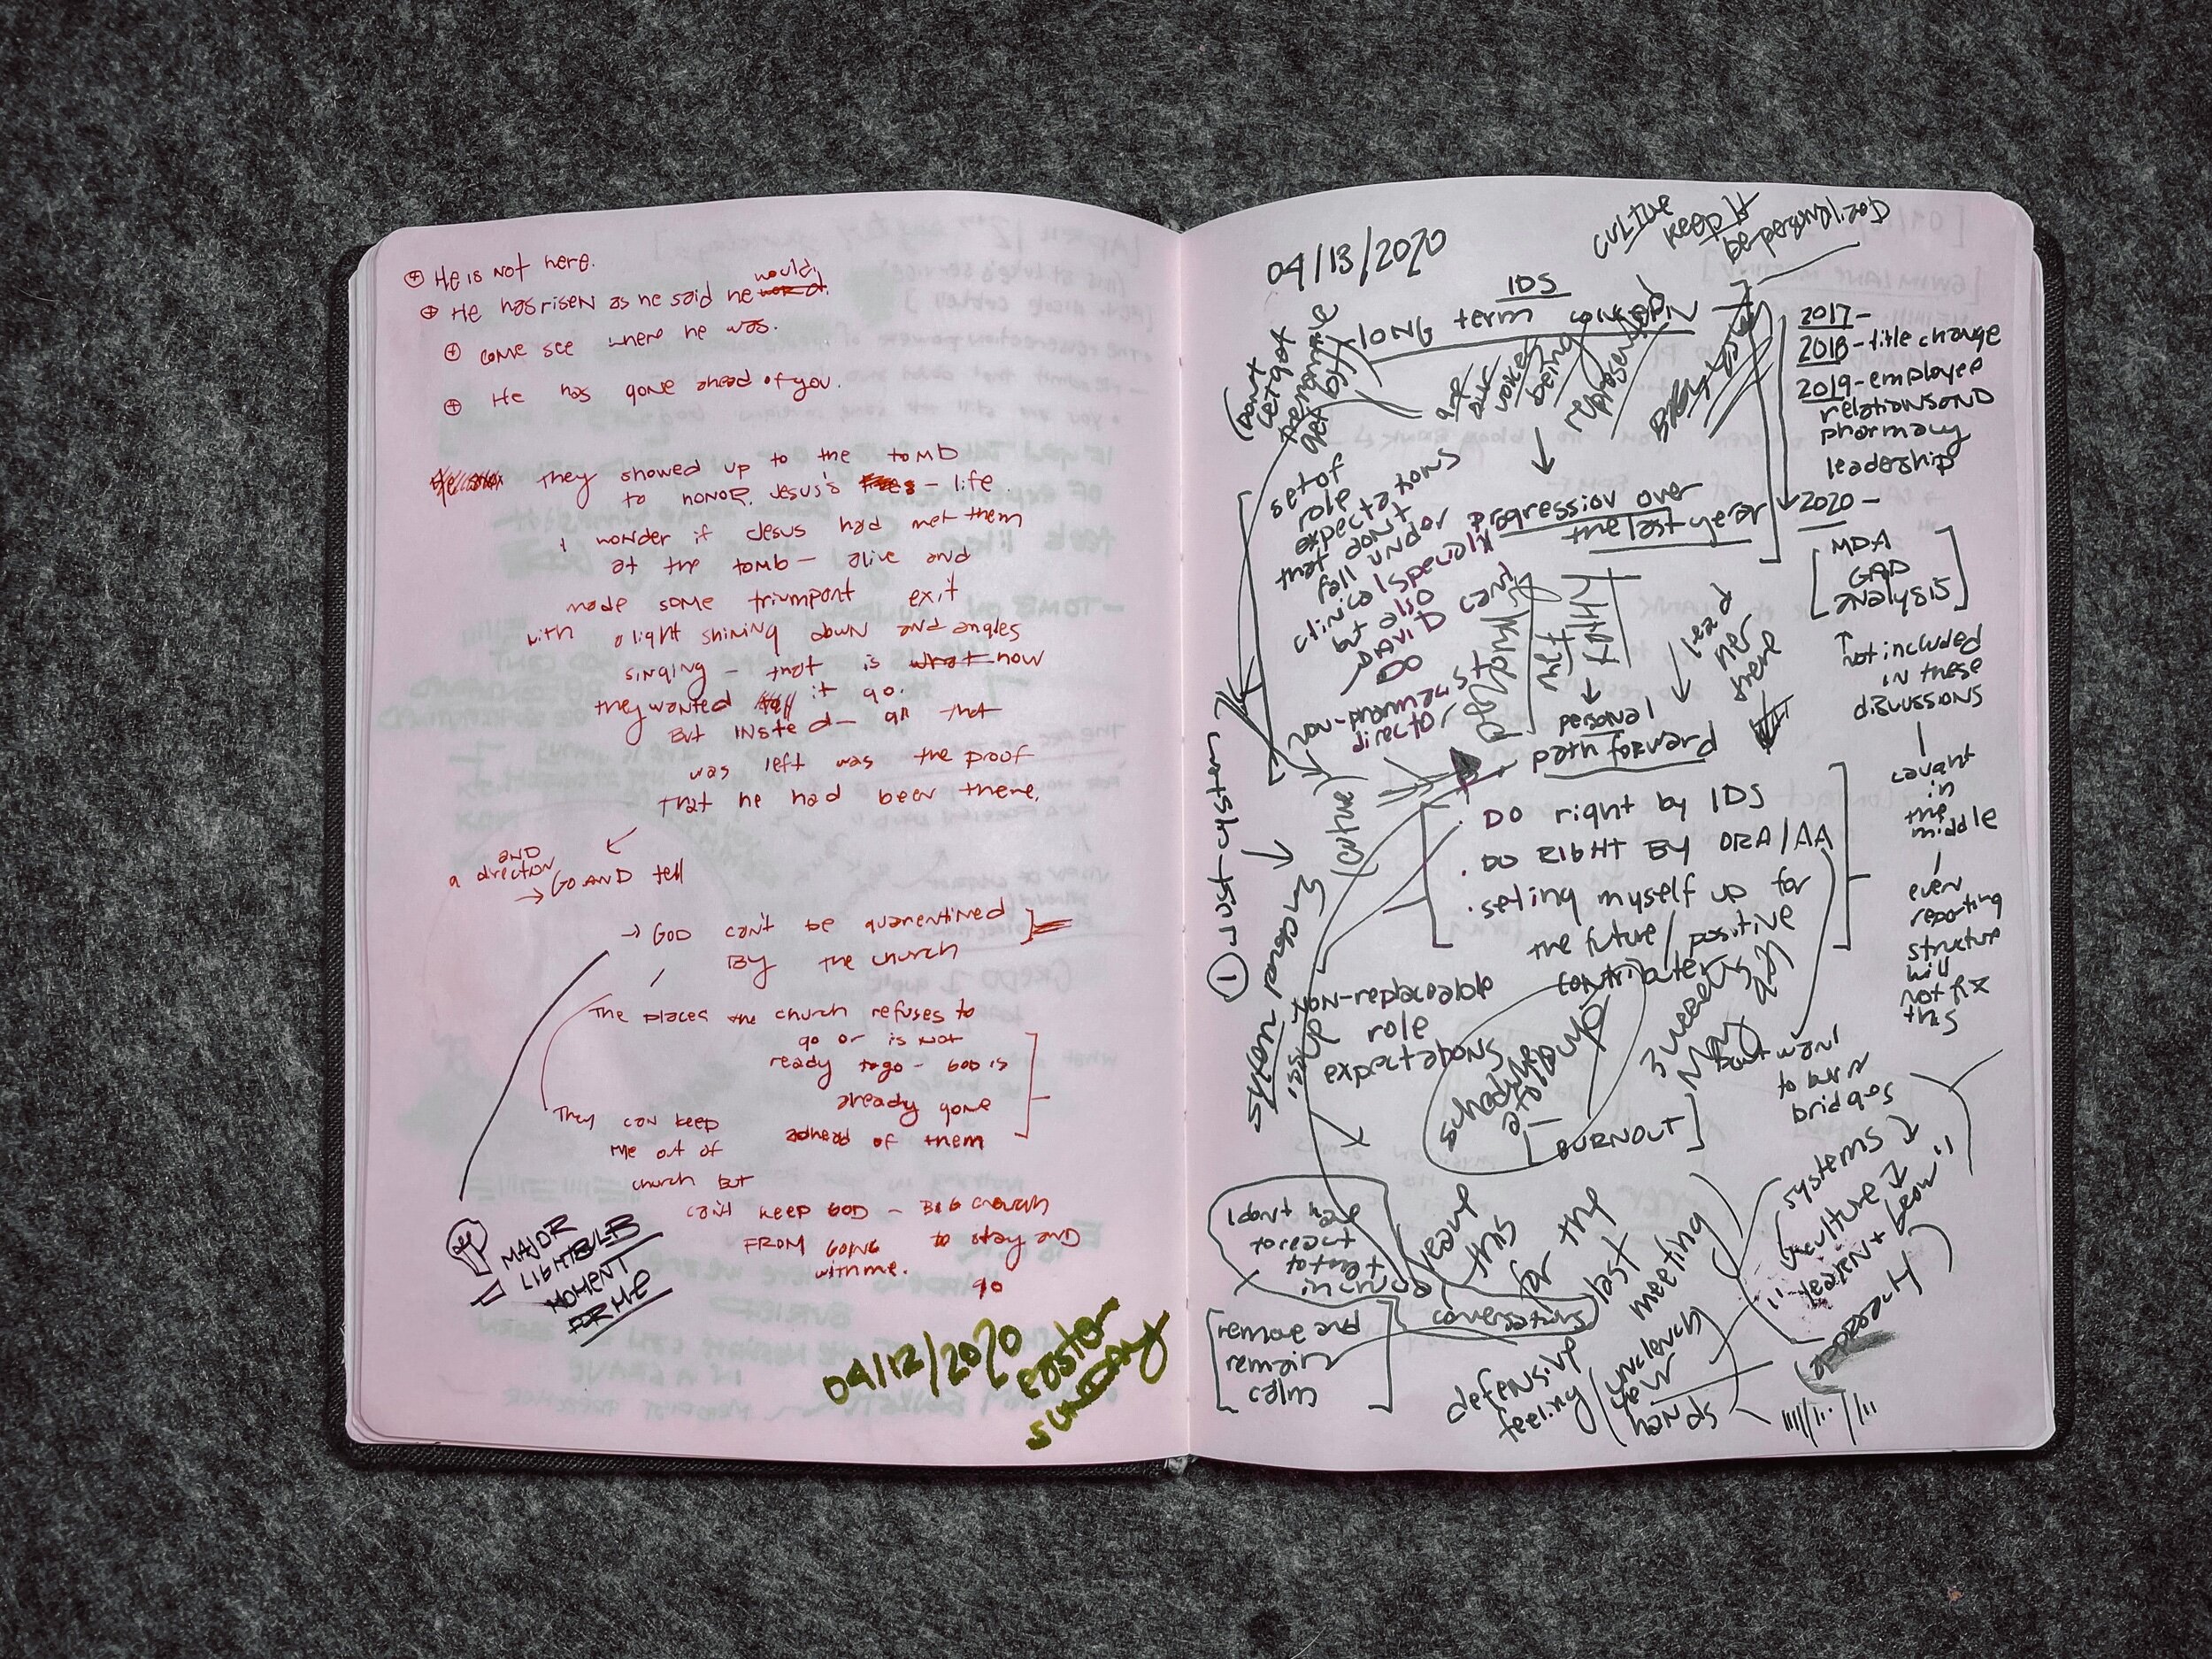 He is not here.
He has risen as he said he would.
come see where he was.
He has gone ahead of you.
They showed up to the tomb
to honor Jesus's - life.
I wonder if Jesus had met them
at the tomb - alive and
made some triumpant exit
with a light shining down and angles
singing - that is what how
they wanted it go.
But insted - all that
was left was the proof
that he had been there.
and
a direction
→ GO AND tell
→ GOD can't be quarentined
By the church
The places the church refuses to
go or is not
ready to go - GOD is
already gone
adhead of them
They can keep
me out of
church but
can't keep GOD - BIG enough
FROM GOING to stay and
with me. go
MAJOR
LIGHTBULB
MOMENT
FOR ME
04/12/2020
easter
sunday
04/13/2020
culture
keep it
be personalized
IDS
long term concern
are our voices being represented
2017 -
2018 - title change
2019 - employee
relations and
pharmacy
leadership
2020 -
[MDA
GAP
analysis]
not included
in these
discussions
caught
in
the
middle
even
reporting
structure
will
not fix
this
set of
role
expectations
that dont
fall under
clinical specialist
but also
David cant
Do
non-pharmacist
director
progression over
the last year
lead
her
there
personal
path forward
. DO right by IDS
. DO RIGHT BY ORA/AA
. seting myself up for
the future/positive
contributer
1 trust-history
(active)
non-replaceable
role
expectations
3 weeks
May
schedule
[BURNOUT]
dont want
to burn
bridges
systems
culture
"learn + grow"
approach
I dont have
to react
to
leave
this
for the
last
meeting
conversations
[remove and
remain
calm]
defensive
feeling
unclench
your
hands